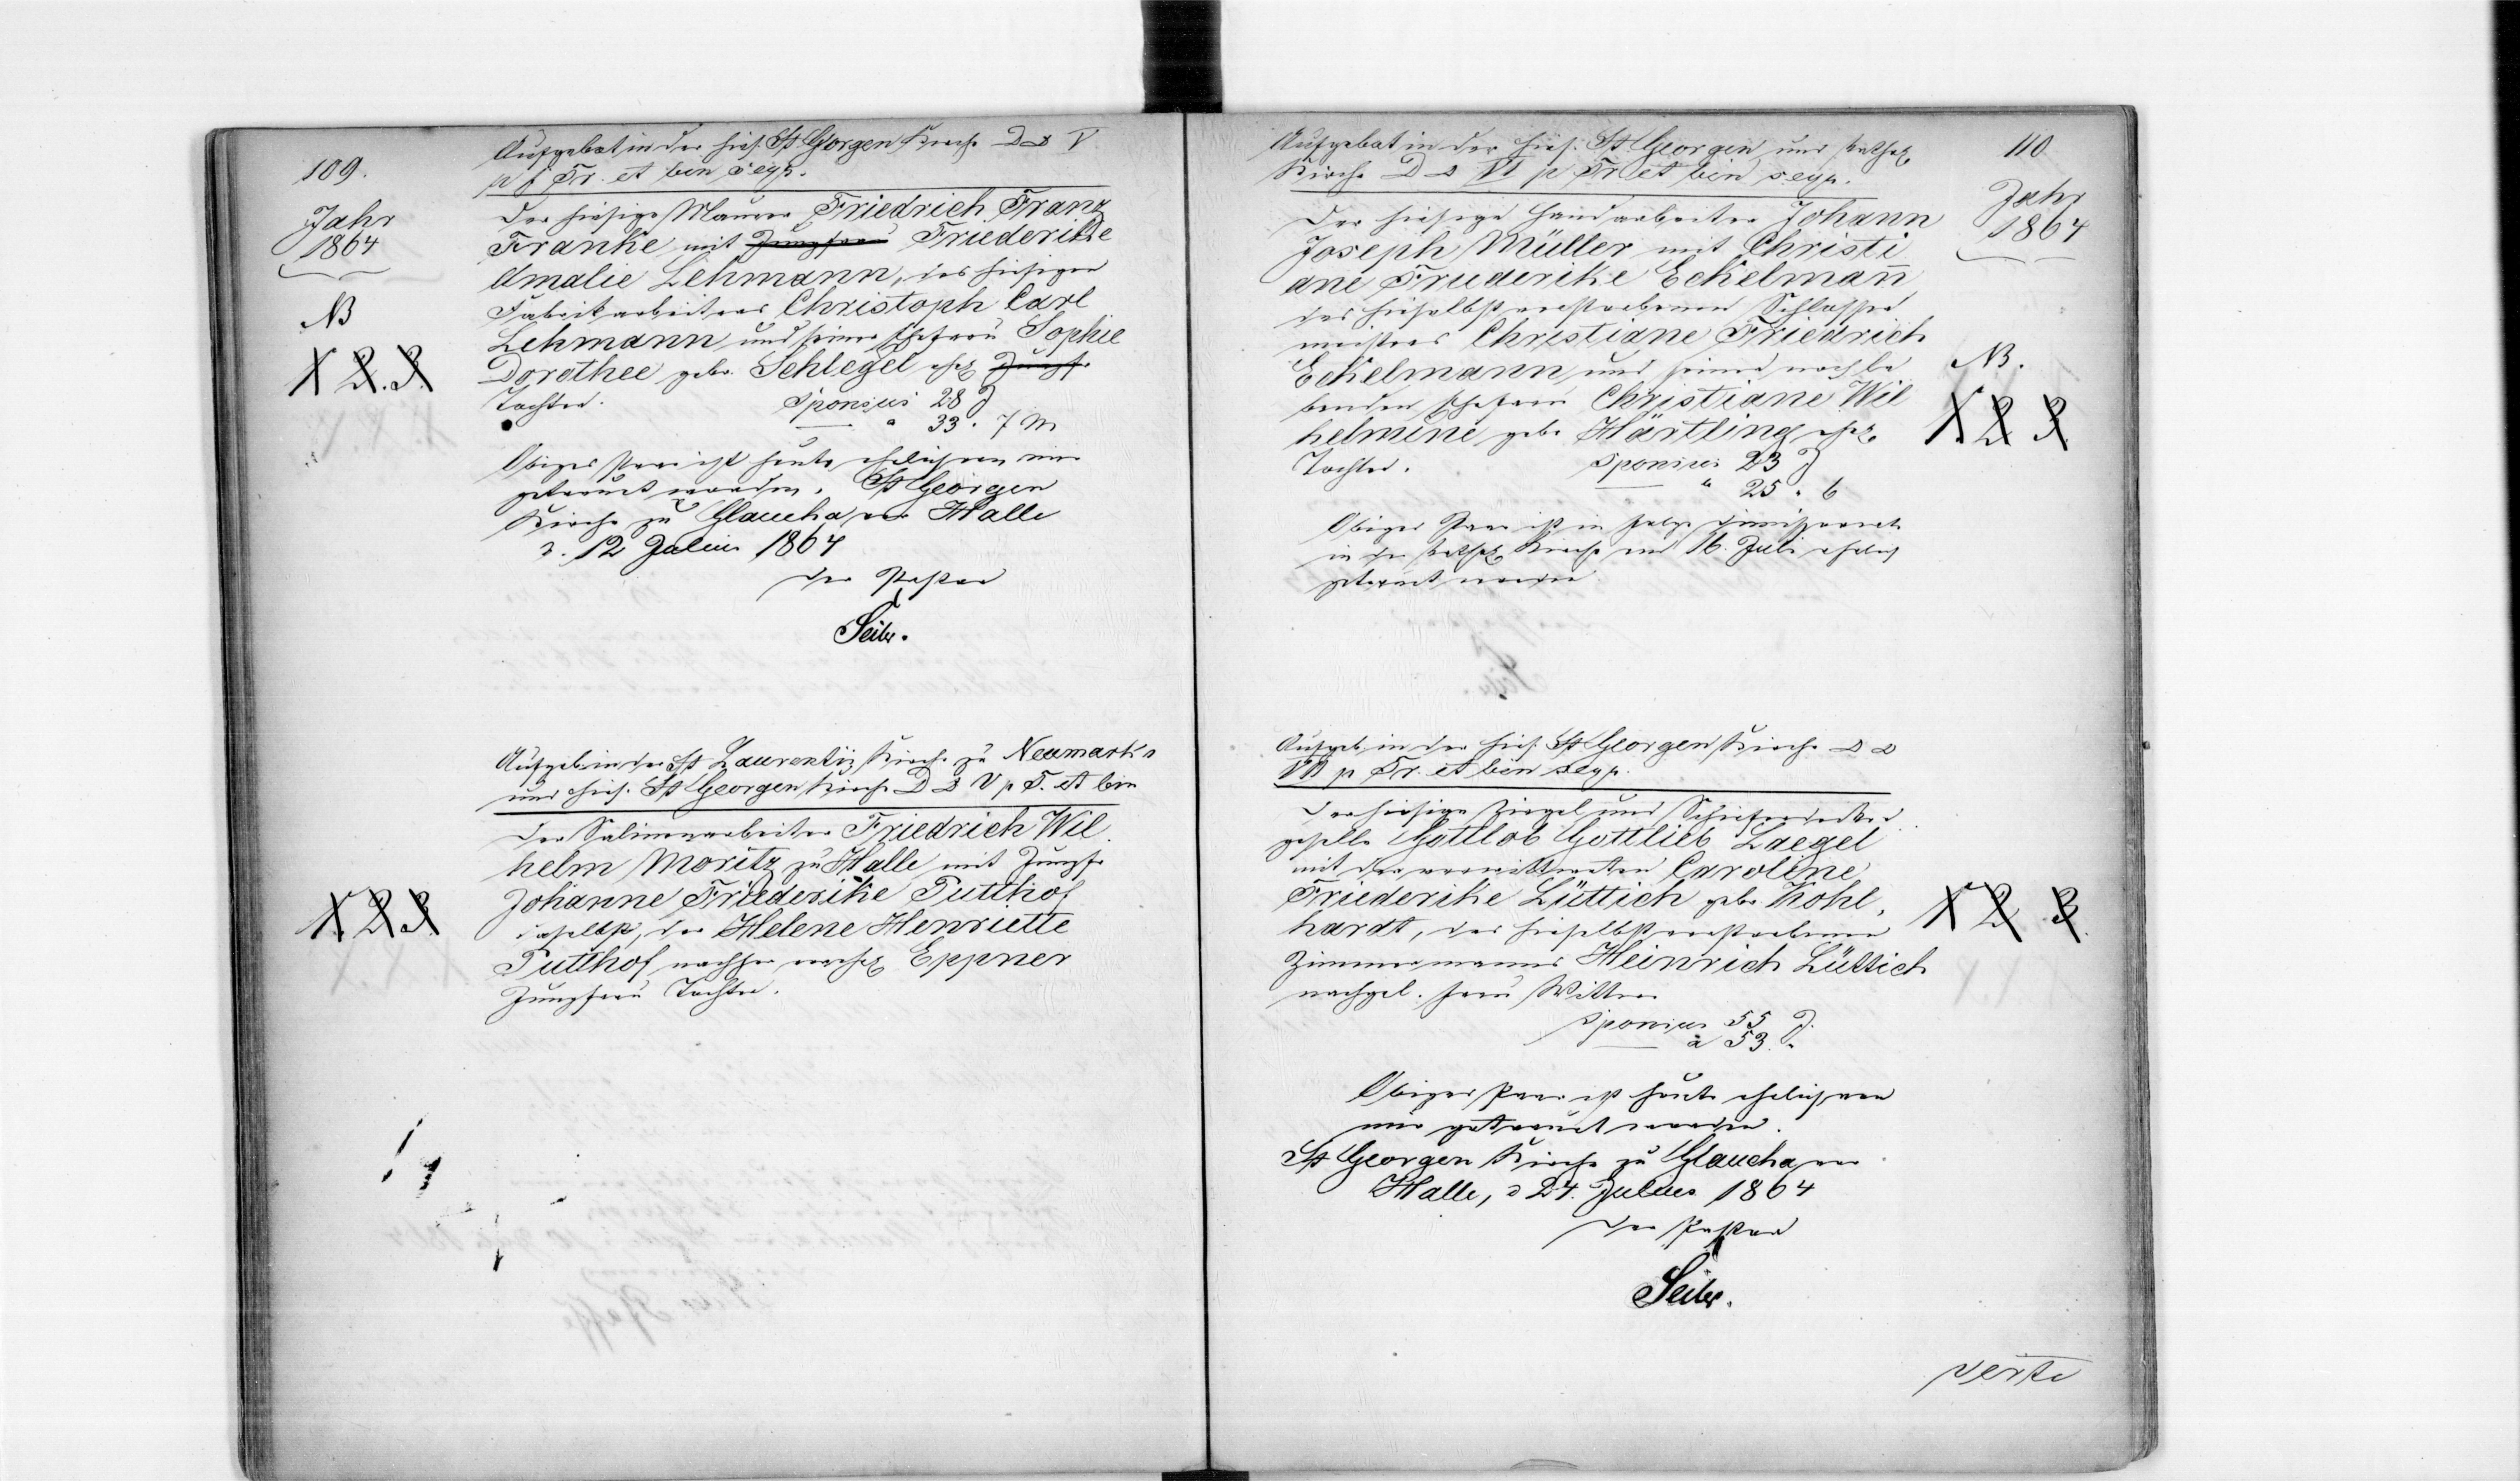 109.
Jahr
1864
NB
1. 2. 3.
Aufgebot in der hies. St Georgen Kirche D D V
p f Tr. et bin seqq.
Der hiesige Maurer Friedrich Franz
Franke mit Jungfrau Friederike
Amalie Lehmann, des hiesigen
Fabrikarbeiters Christoph Carl
Lehmann und seiner Ehefrau Sophie
Dorothee geb. Schlegel ehel. Jungfr.
Tochter.
Sponsus 28 J
a 33 " 7 M
Obiges Paar ist heute ehelich von mir
getraut worden. St Georgen
Kirche zu Glaucha vor Halle
d. 12 Julius 1864
Der Pastor
Seiler.
Aufgeb. in der St Laurentii Kirche zu Neumarkt
und hies. St Georgen Kirche D D V p T. et bin
1. 2. 3.
Der Salinenarbeiter Friedrich Wil
helm Moritz zu Halle mit Jungfr
Johanne Friederike Putthof
daselbst, der Helene Henriette
Putthof nachher verehel. Eppner
Jungfrau Tochter.
110
Jahr
1864
Aufgebot in der hies. St Georgen und kathol.
Kirche D D VI p Tr et bin seqq.
Der hiesige Handarbeiter Johann
Joseph Müller mit Christi
ane Friederike Eckelmañ
des hieselbst verstorbenen Schlosser
meisters Christiane Friedrich
Eckelmann und seiner nachle
benden Ehefrau Christiane Wil
helmine geb. Härtling ehel.
Tochter.
NB.
1. 2. 3.
Sponsus 23 J
a 25 " 6
Obiges Paar ist in Folge
in der kathol. Kirche am 16. Juli ehelich
getraut worden
Aufgeb. in der hies. St Georgen Kirche D D
VII p Tr. et bin seqq.
Der hiesige Ziegel und Schieferdecker
geselle Gottlob Gottlieb Laegel
mit der verwittweten Caroline
Friederike Lüttich geb. Kohl,
hardt, des hieselbst verstorbenen
Zimmermanns Heinrich Lüttich
nachgel. Frau Wittwe.
1. 2. 3.
Sponsus 55 J.
a 53. "
Obiges Paar ist heute ehelich von
mir getraut worden.
St Georgen Kirche zu Glaucha vor
Halle, d 24. Julius 1864
Der Pastor
Seiler.
verte